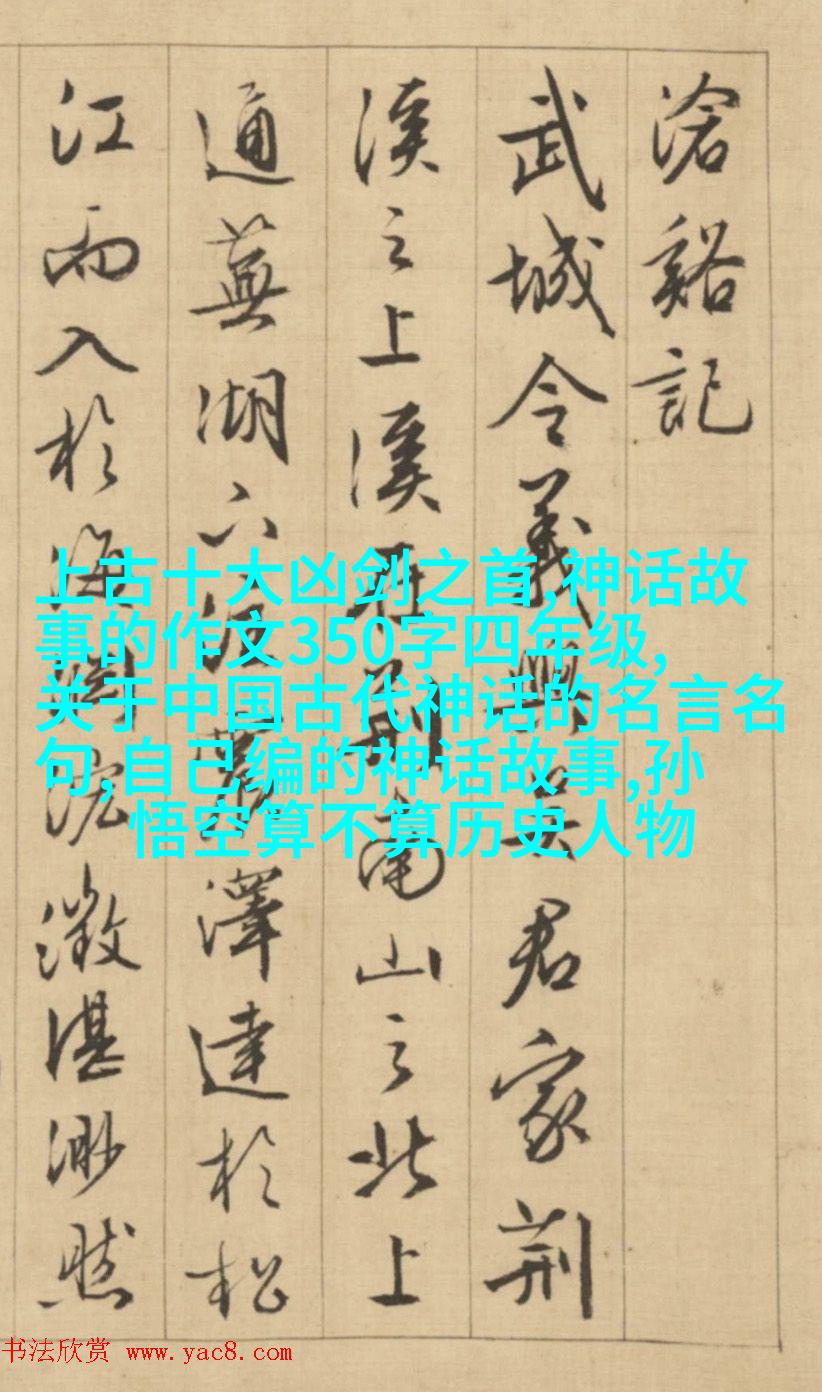 滄谿記
武城令義興吳君家荆
溪之上溪在荆南山之北上
通蕪湖下震澤達於松
江而入於海淵澂湛渺然
上古十大凶剑之首,神话故
事的作文350字四年级,
关于中国古代神话的名言名
句,自己编的神话故事,孙
悟空算不算历史人物
书法欣赏 www.yac8.com